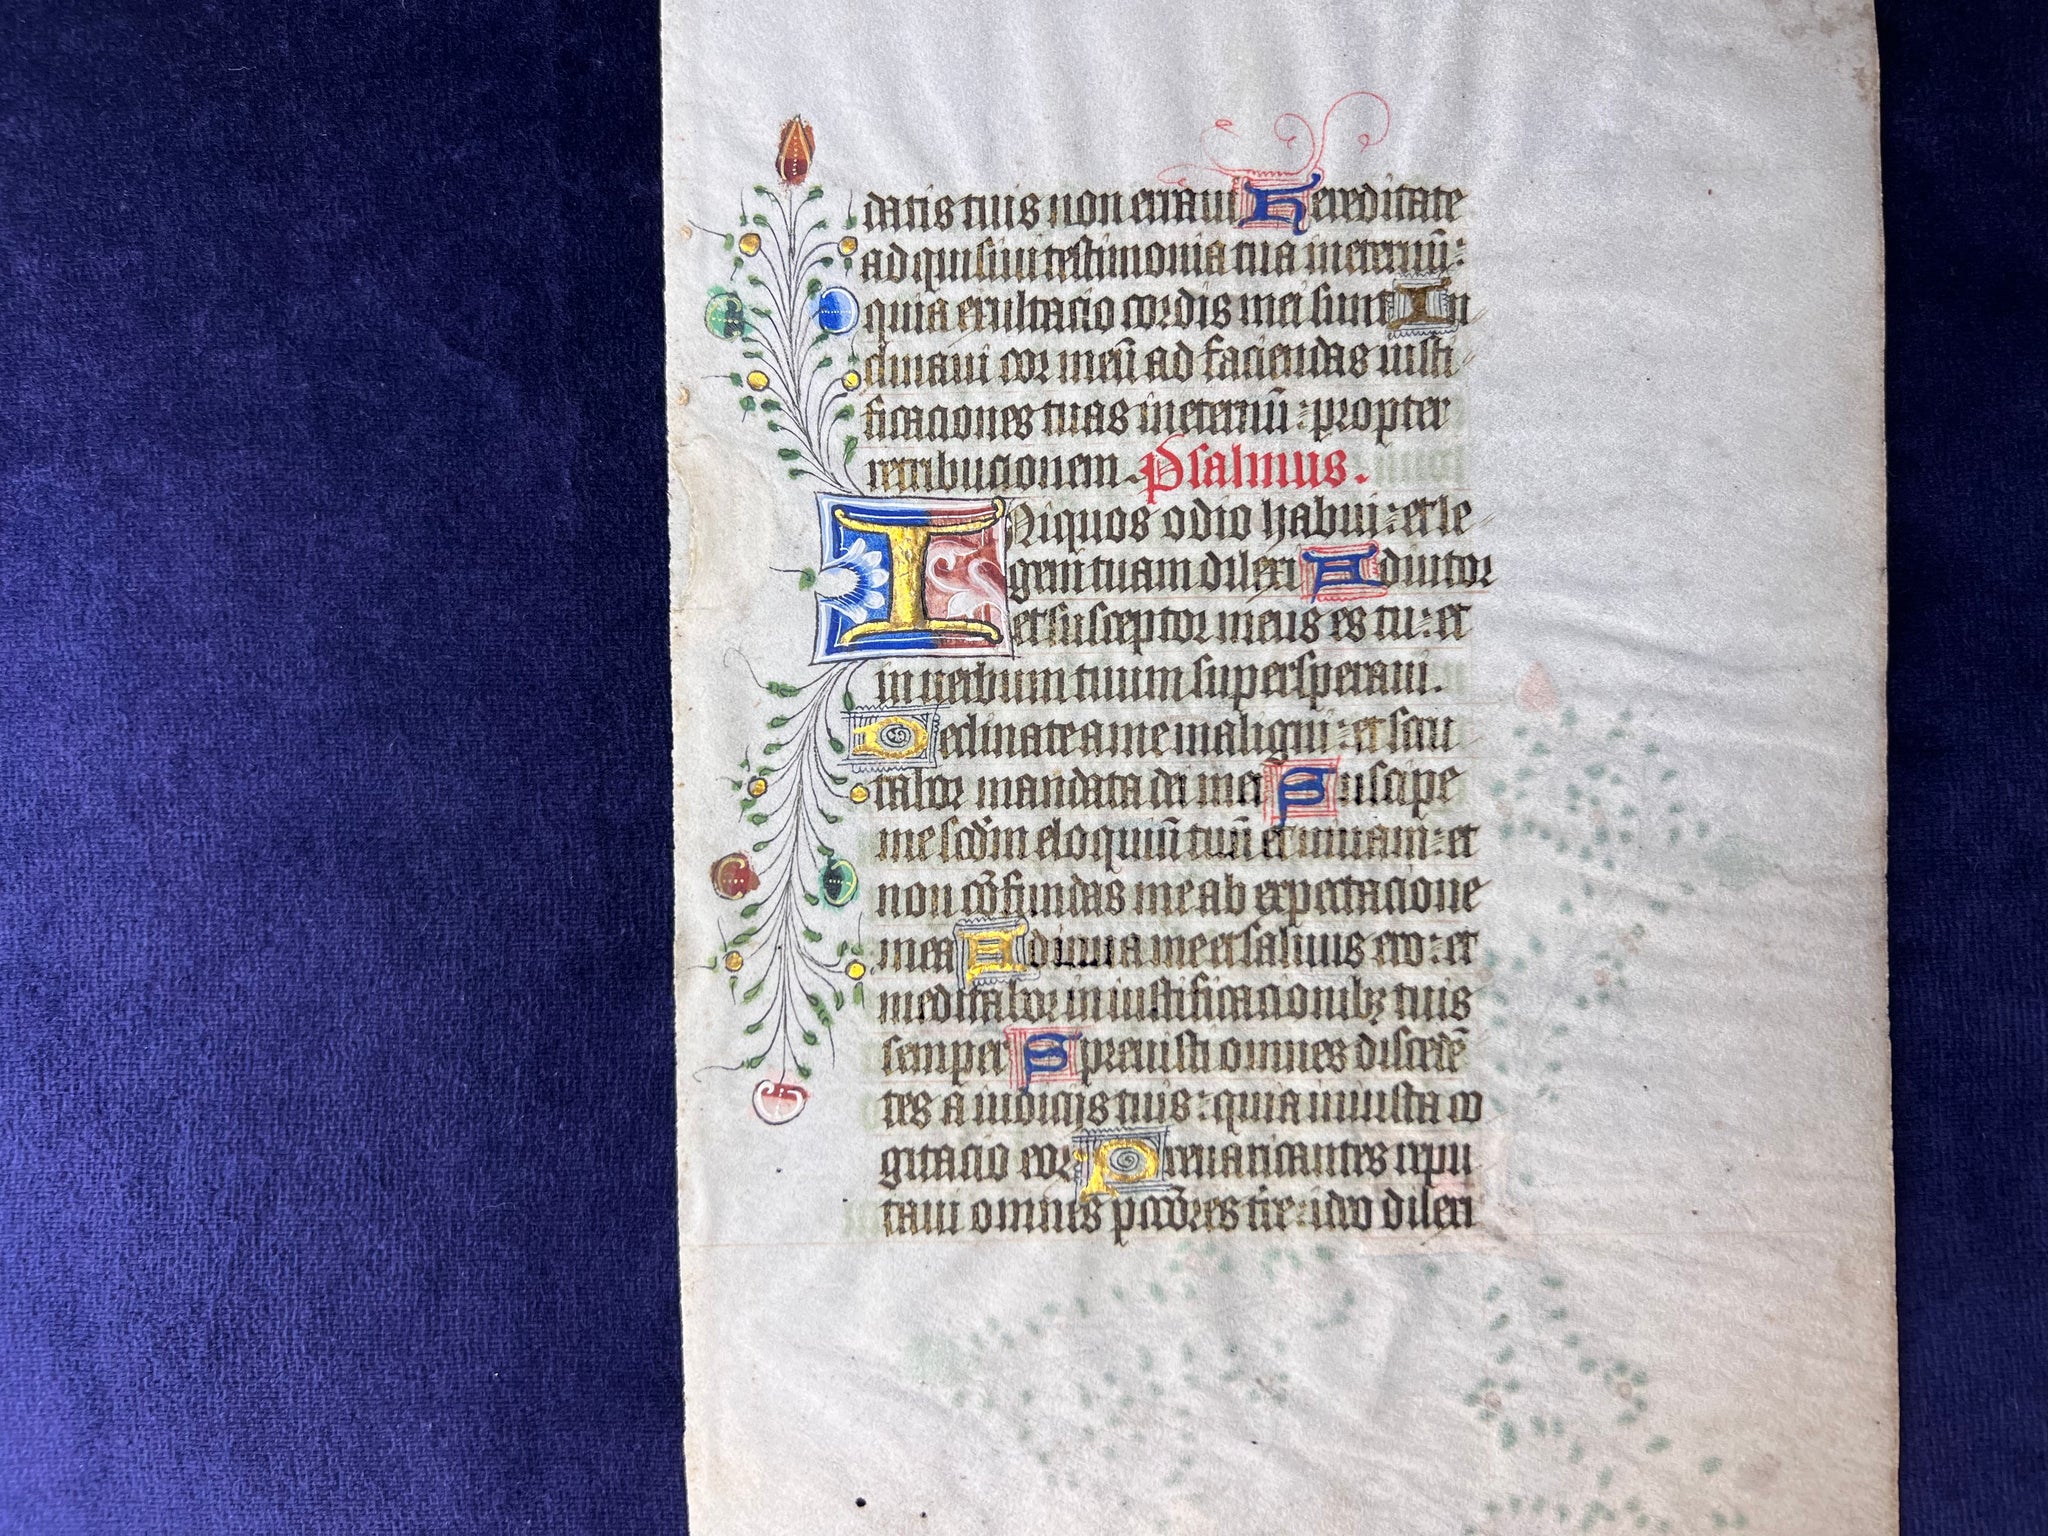 datis tuis non erraui Hereditate
adquisiui testimonia tua ineternū :
quia exultacio cordis mei sunt In
clinaui cor meū ad faciendas iusti
ficaciones tuas ineternū : propter
retribucionem . Psalmus .
INiquos odio habui : et le
gem tuam dilexi Adiutor
et susceptor meus es tu : et
in uerbum tuum supersperaui .
Declinate a me maligni : et scru
tabor mandata dei mei Suscipe
me scdm̄ eloquiū tuū et uiuam : et
non cōfundas me ab expectacione
mea Adiuua me et saluus ero : et
meditabor in iustificacionibꝫ tuis
semper Spreuisti omnes discedē
tes a iudicijs tuis : quia iniusta co
gitacio eoꝝ Preuaricantes repu
taui omnes pccōres tre : ideo dilexi